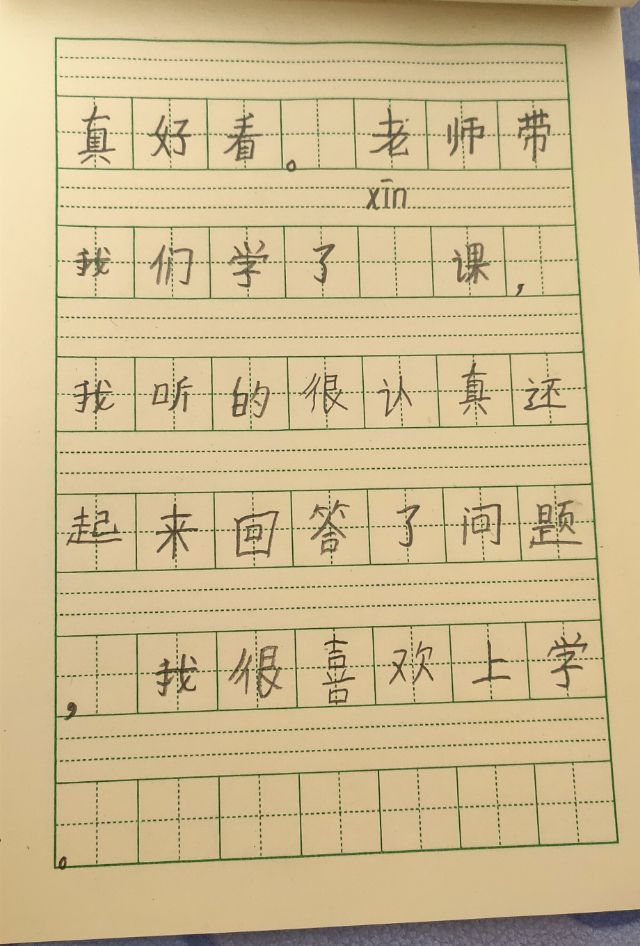 真好看。老师带
xīn
我们学了 课，
我听的很认真还
起来回答了问题
，我很喜欢上学
。